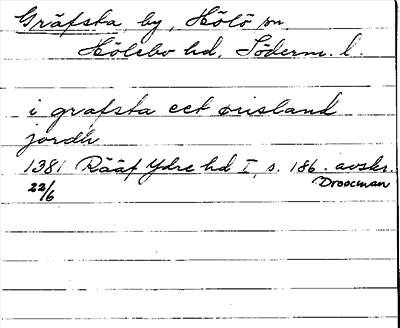 Gräfsta, by, Hölö sn
Hölebo hd, Söderm. l.
i grafsta ett örisland
jordh
1381 Rääf Ydre hd I, s. 186. avskr.
22/6 Droocman